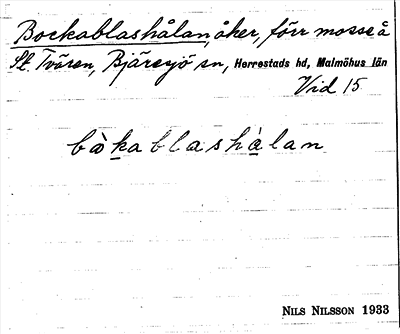 Bockablashålan, åker, förr mosse å
St. Tvären, Bjäresjö sn, Herrestads hd, Malmöhus län
Vid 15.
bȯ̀ḵablashà̱lan
NILS NILSSON 1933